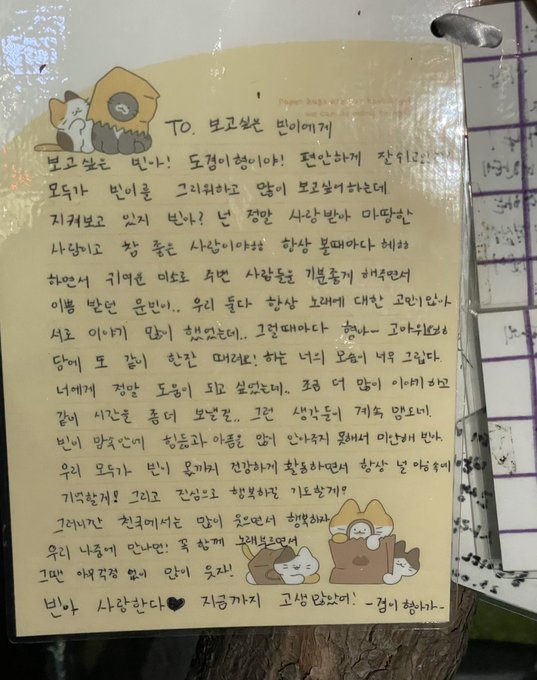 TO. 보고싶은 빈이에게
보고싶은 빈아! 도겸이형이야! 편안하게 잘 쉬고
모두가 빈이를 그리워하고 많이 보고싶어하는데
지켜보고 있지 빈아? 넌 정말 사랑받아 마땅한
사람이고 참 좋은 사람이야ㅎㅎ 항상 볼때마다 헤헤
하면서 귀여운 미소로 주변 사람들을 기분좋게 해주면서
이쁨 받던 문빈이.. 우리 둘다 항상 노래에 대한 고민이 많아
서로 이야기 많이 했었는데.. 그럴때마다 형아~ 고마워요ㅎㅎ
담에 또 같이 한잔 때려요! 하는 너의 모습이 너무 그립다.
너에게 정말 도움이 되고 싶었는데.. 조금 더 많이 이야기 하고
같이 시간을 좀 더 보낼걸.. 그런 생각들이 계속 맴도네.
빈이 맘속안에 힘듦과 아픔을 많이 안아주지 못해서 미안해 빈아.
우리 모두가 빈이 몫까지 건강하게 활동하면서 항상 널 마음속에
기억할게! 그리고 진심으로 행복하길 기도할게!
그러니깐 천국에서는 많이 웃으면서 행복하자
우리 나중에 만나면! 꼭 함께 노래부르면서
그땐 아무걱정 없이 많이 웃자!
빈아 사랑한다♥ 지금까지 고생많았어! -겸이 형아가-